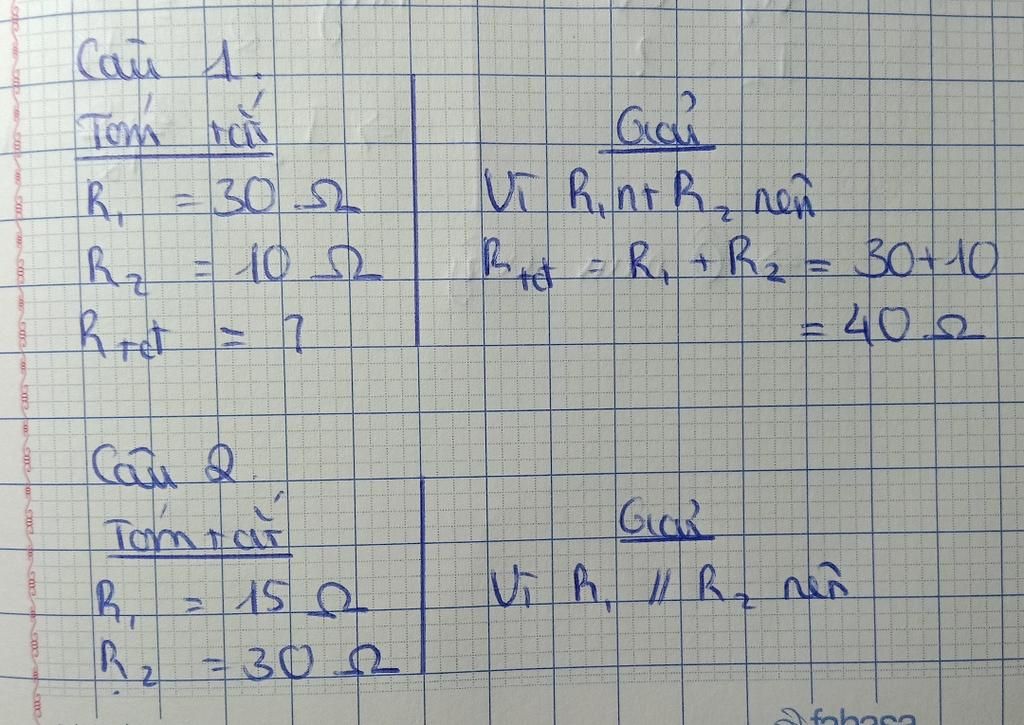 Câu 1.
Tóm tắt
R₁ = 30 Ω
R₂ = 10 Ω
Rtđ = ?
Giải
Vì R₁ nt R₂ nên
Rtđ = R₁ + R₂ = 30+10
= 40 Ω
Câu 2.
Tóm tắt
R₁ = 15 Ω
R₂ = 30 Ω
Giải
Vì R₁ // R₂ nên
fahasa